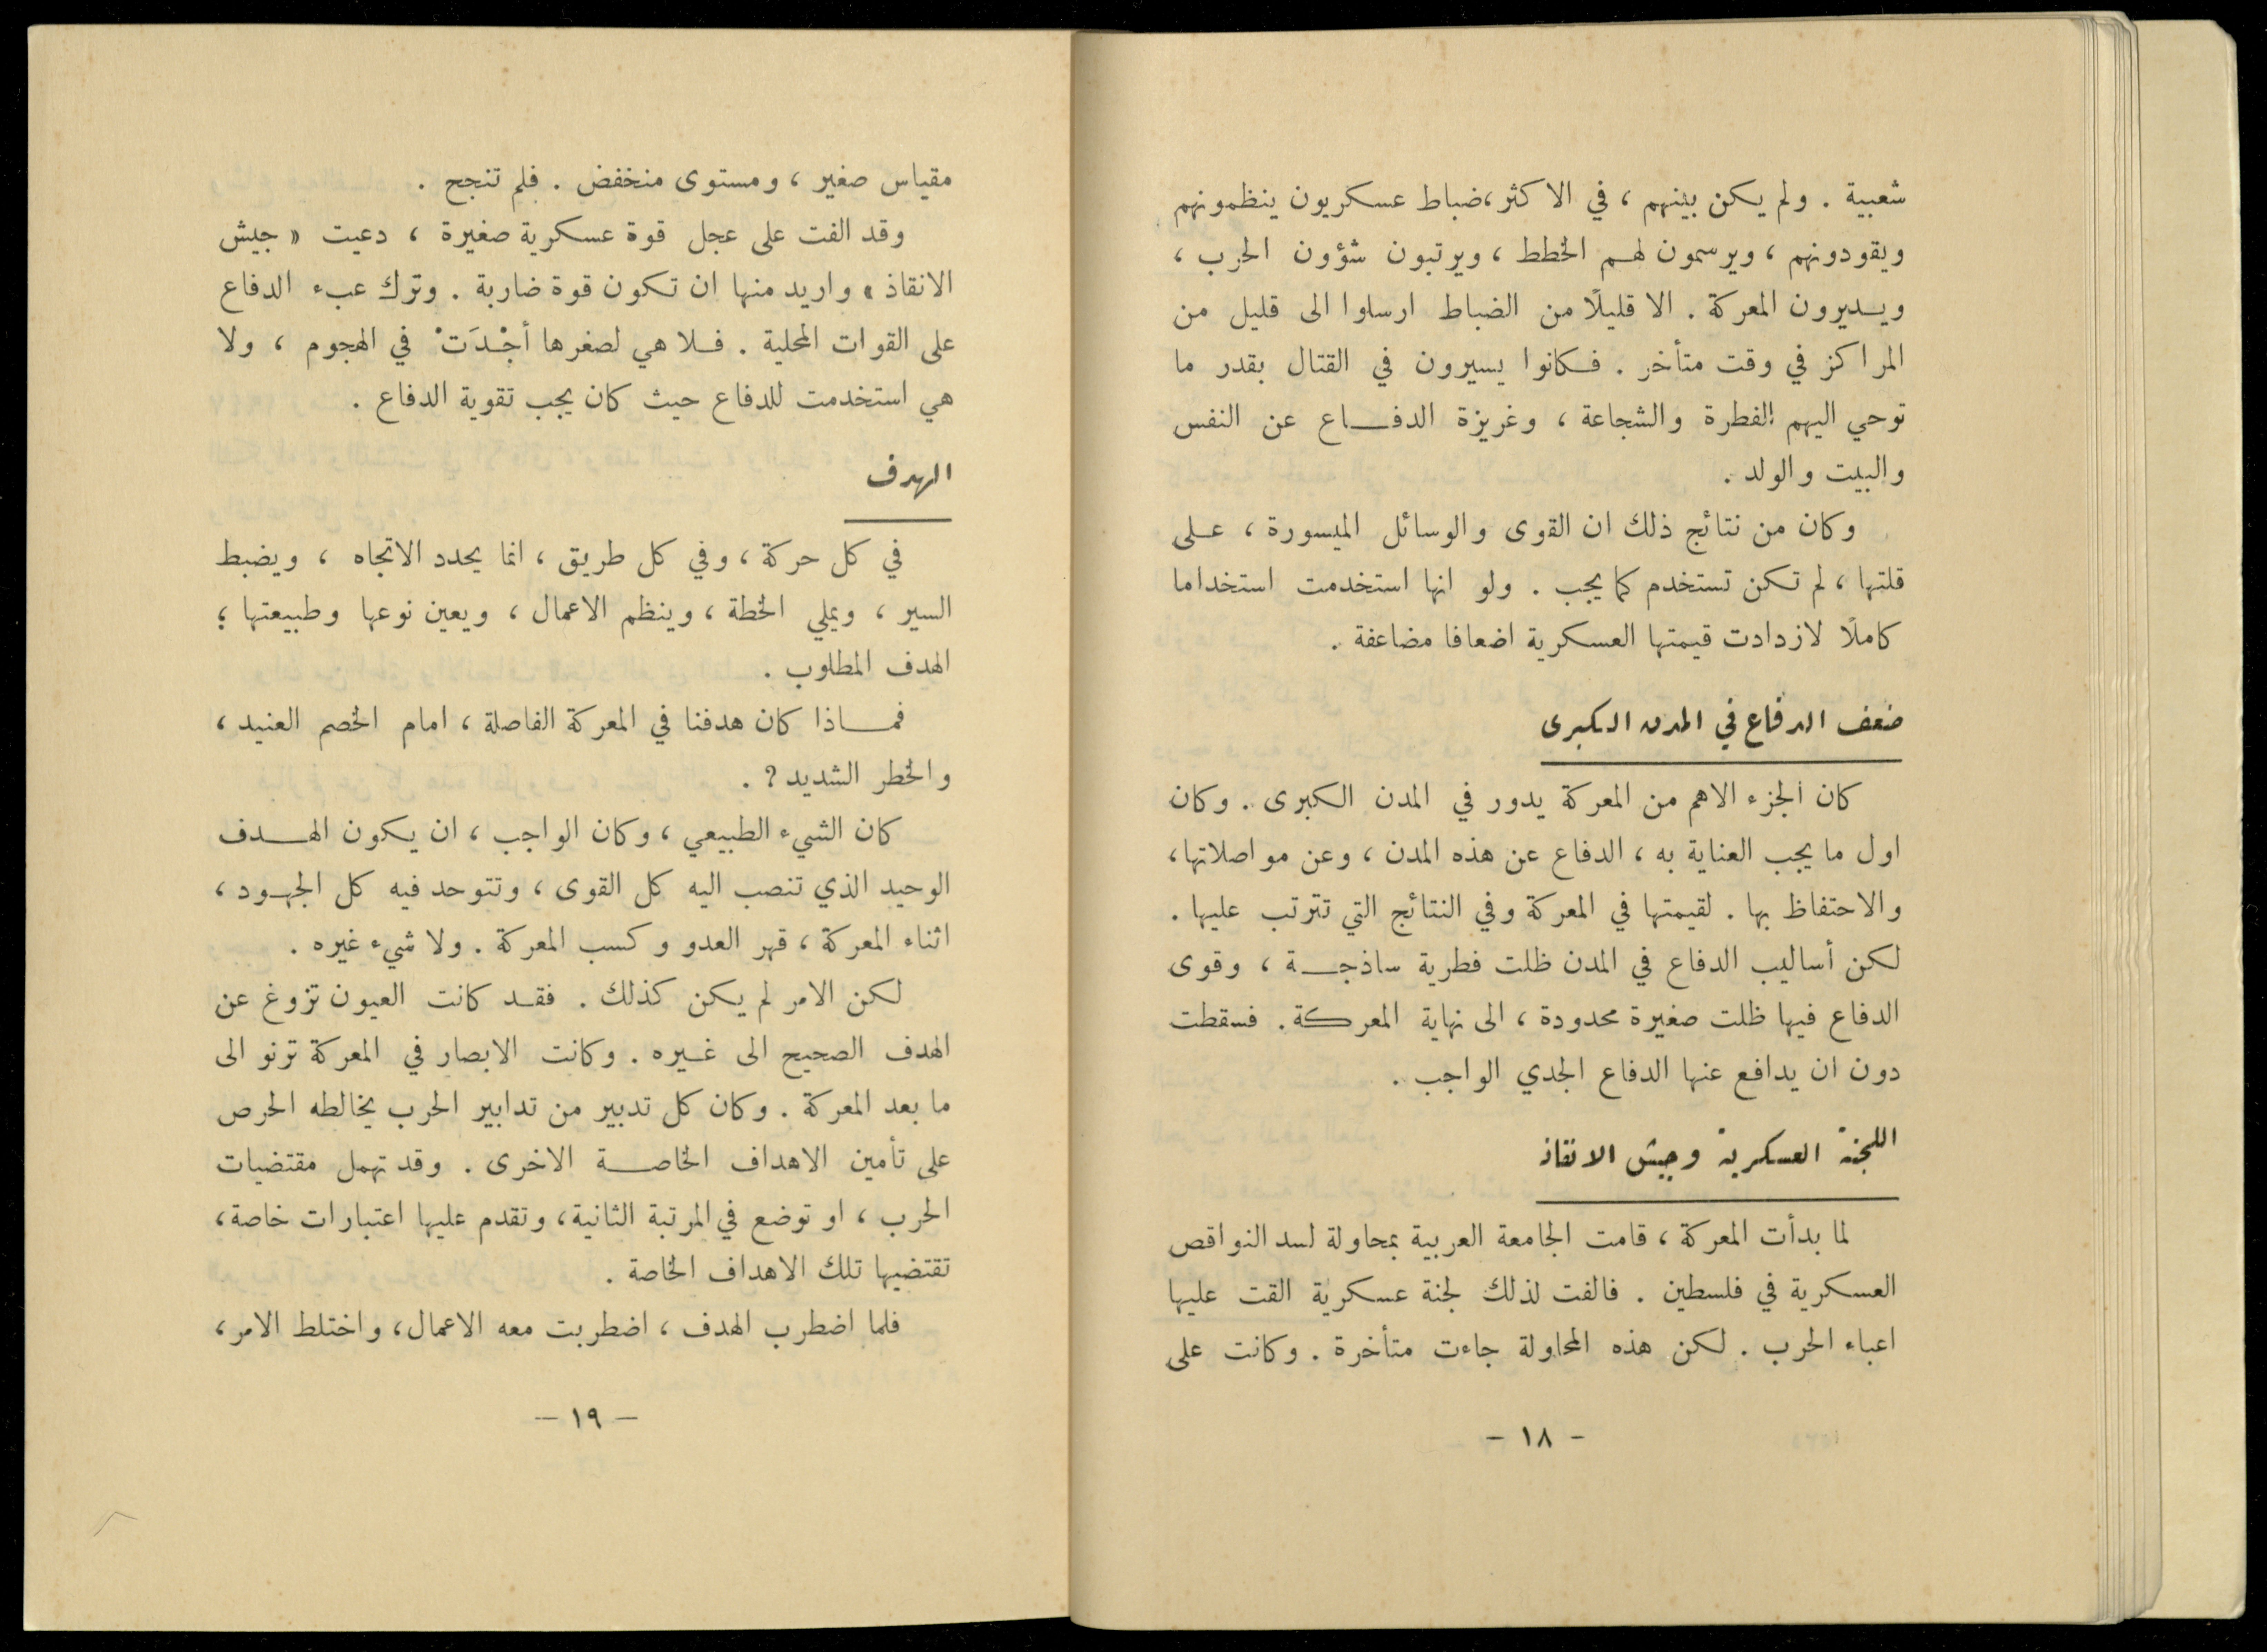 شعبية . ولم يكن بينهم ، في الاكثر ،ضباط عسكريون ينظمونهم
ويقودونهم ، ويرسمون لهم الخطط ، ويرتبون شؤون الحرب ،
ويديرون المعركة . الا قليلًا من الضباط ارسلوا الى قليل من
المراكز في وقت متأخر . فكانوا يسيرون في القتال بقدر ما
توحي اليهم الفطرة والشجاعة ، وغريزة الدفاع عن النفس
والبيت والولد .
وكان من نتائج ذلك ان القوى والوسائل الميسورة ، على
قلتها ، لم تكن تستخدم كما يجب . ولو انها استخدمت استخداما
كاملًا لازدادت قيمتها العسكرية اضعافا مضاعفة .
ضعف الدفاع في المدن الكبرى
كان الجزء الاهم من المعركة يدور في المدن الكبرى . وكان
اول ما يجب العناية به ، الدفاع عن هذه المدن ، وعن مواصلاتها ،
والاحتفاظ بها . لقيمتها في المعركة وفي النتائج التي تترتب عليها .
لكن أساليب الدفاع في المدن ظلت فطرية ساذجة ، وقوى
الدفاع فيها ظلت صغيرة محدودة ، الى نهاية المعركة . فسقطت
دون ان يدافع عنها الدفاع الجدي الواجب .
اللجنة العسكرية وجيش الانقاذ
لما بدأت المعركة ، قامت الجامعة العربية بمحاولة لسد النواقص
العسكرية في فلسطين . فالفت لذلك لجنة عسكرية القت عليها
اعباء الحرب . لكن هذه المحاولة جاءت متأخرة . وكانت على
- ١٨ -
مقياس صغير ، ومستوى منخفض . فلم تنجح .
وقد الفت على عجل قوة عسكرية صغيرة ، دعيت « جيش
الانقاذ » واريد منها ان تكون قوة ضاربة . وترك عبء الدفاع
على القوات المحلية . فلا هي لصغرها أجْدَتْ في الهجوم ، ولا
هي استخدمت للدفاع حيث كان يجب تقوية الدفاع .
الهدف
في كل حركة ، وفي كل طريق ، انما يحدد الاتجاه ، ويضبط
السير ، ويملي الخطة ، وينظم الاعمال ، ويعين نوعها وطبيعتها ؛
الهدف المطلوب .
فماذا كان هدفنا في المعركة الفاصلة ، امام الخصم العنيد ،
والخطر الشديد ? .
كان الشيء الطبيعي ، وكان الواجب ، ان يكون الهدف
الوحيد الذي تنصب اليه كل القوى ، وتتوحد فيه كل الجهود ،
اثناء المعركة ، قهر العدو وكسب المعركة . ولا شيء غيره .
لكن الامر لم يكن كذلك . فقد كانت العيون تزوغ عن
الهدف الصحيح الى غيره . وكانت الابصار في المعركة ترنو الى
ما بعد المعركة . وكان كل تدبير من تدابير الحرب يخالطه الحرص
على تأمين الاهداف الخاصة الاخرى . وقد تهمل مقتضيات
الحرب ، او توضع في المرتبة الثانية ، وتقدم عليها اعتبارات خاصة ،
تقتضيها تلك الاهداف الخاصة .
فلما اضطرب الهدف ، اضطربت معه الاعمال ، واختلط الامر ،
- ١٩ -